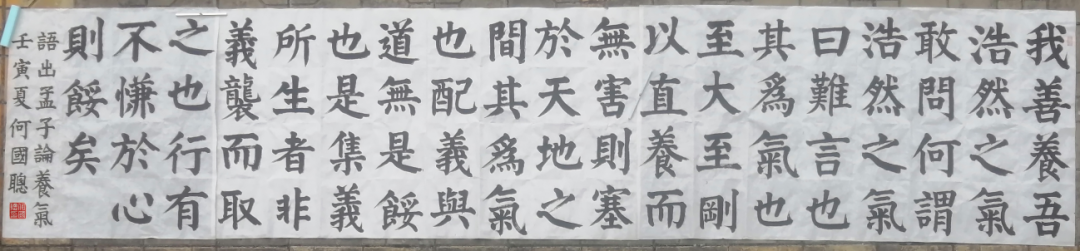 我善養吾
浩然之氣
敢問何謂
浩然之氣
曰難言也
其爲氣也
至大至剛
以直養而
無害則塞
於天地之
間其爲氣
也配義與
道無是餒
也是集義
所生者非
義襲而取
之也行有
不慊於心
則餒矣
語出孟子論養氣
壬寅夏何國聰